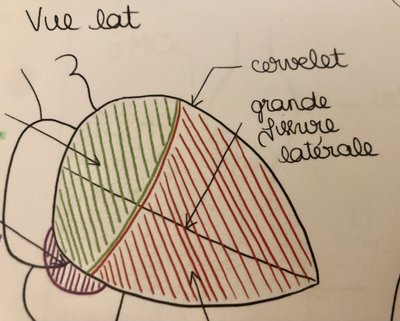 Vue lat
cervelet
grande
fissure
latérale